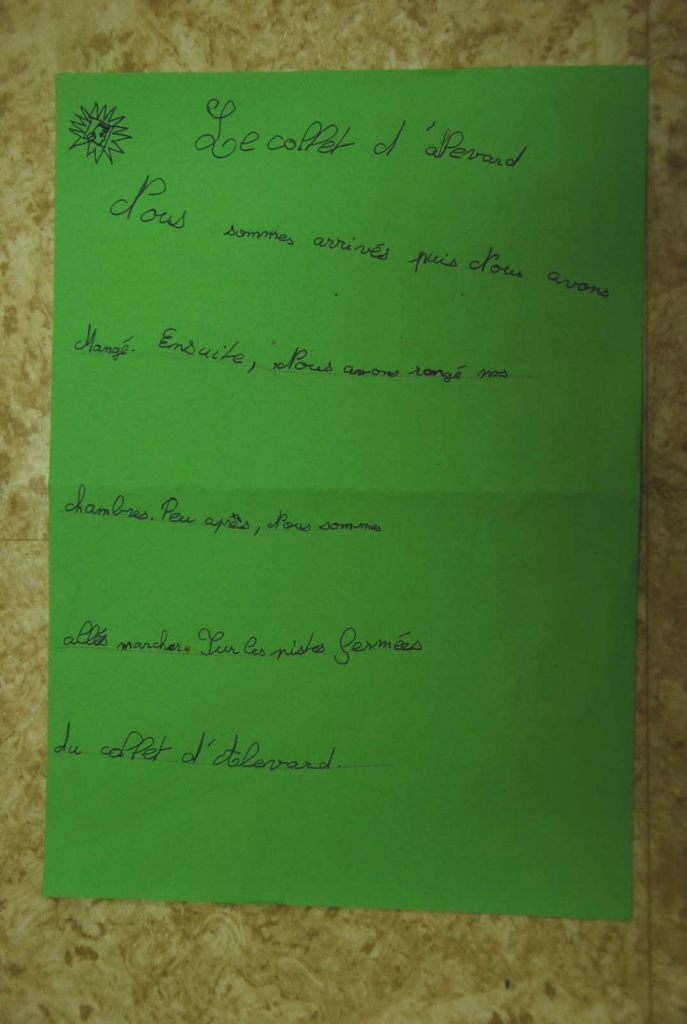 Le collet d'alevard
Nous sommes arrivés puis Nous avons
Mangé. Ensuite, Nous avons rangé nos
chambres. Peu après, Nous sommes
allés marcher. Sur les pistes fermées
du collet d'Alevard.